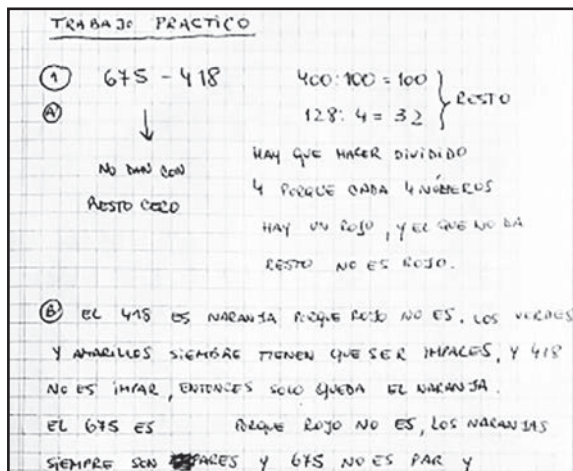 TRABAJO PRACTICO
① 675 - 418
A
↓
NO DAN CON
RESTO CERO
400:100 = 100
128: 4 = 32
} RESTO
HAY QUE HACER DIVIDIDO
4 PORQUE CADA 4 NÚMEROS
HAY UN ROJO, Y EL QUE NO DA
RESTO NO ES ROJO.
B EL 418 ES NARANJA PORQUE ROJO NO ES, LOS VERDES
Y AMARILLOS SIEMBRE TIENEN QUE SER IMPARES, Y 418
NO ES IMPAR, ENTONCES SOLO QUEDA EL NARANJA.
EL 675 ES PORQUE ROJO NO ES, LOS NARANJAS
SIEMPRE SON PARES Y 675 NO ES PAR Y